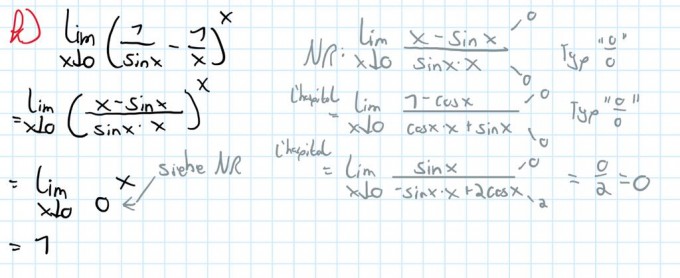 k) lim x↓0 (1/sinx - 1/x)^x
= lim x↓0 (x-sinx / sinx·x)^x
= lim x↓0 0^x siehe NR
= 1
NR: lim x↓0 x-sinx / sinx·x →0 →0 Typ "0/0"
L'hospital = lim x↓0 1-cosx / cosx·x+sinx →0 →0 Typ "0/0"
L'hospital = lim x↓0 sinx / -sinx·x+2cosx →0 →2 = 0/2 = 0